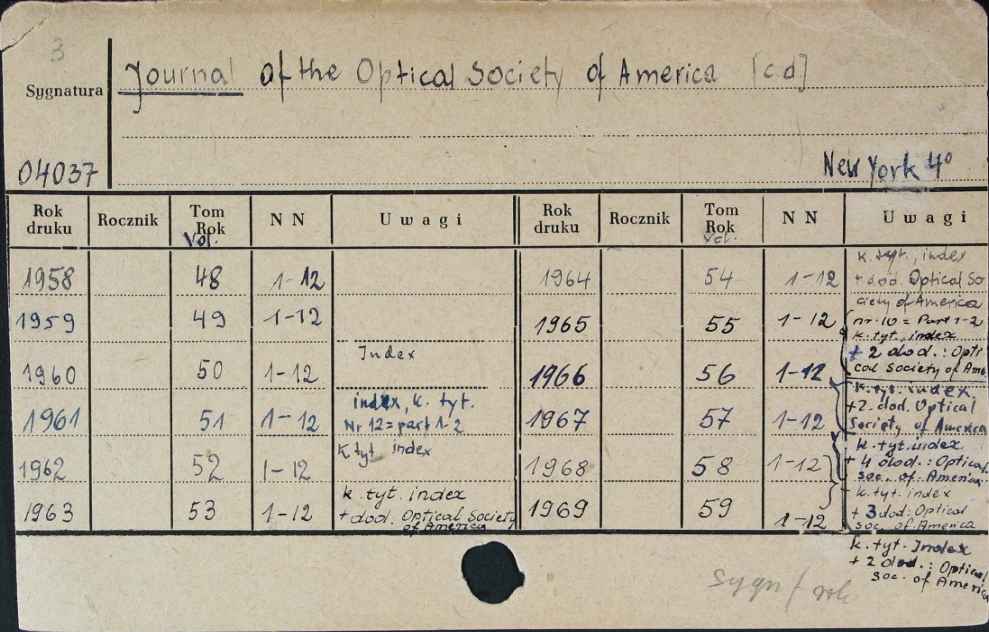 3
Sygnatura
Journal of the Optical Society of America [c.d]
04037
New York 4°
Rok druku Rocznik Tom Rok Vol. NN Uwagi Rok druku Rocznik Tom Rok Vol. NN Uwagi
1958 48 1-12
1959 49 1-12
1960 50 1-12 Index
1961 51 1-12 index, k. tyt.
Nr 12 = part 1-2
1962 52 1-12 k tyt index
1963 53 1-12 k. tyt. index
+ dod. Optical Society
of America
1964 54 1-12
1965 55 1-12
1966 56 1-12
1967 57 1-12
1968 58 1-12
1969 59 1-12
k. tyt., index
+ dod. Optical So
ciety of America
nr. 10 = Part 1-2
k. tyt. index
+ 2 dod. : Opti
cal Society of Ame
k. tyt. index.
+2. dod. Optical
Society of America
k. tyt. index
+ 4 dod. : Optical
soc. of America
k. tyt. index
+ 3 dod: Optical
soc. of America
k. tyt. Index
+ 2 dod. : Optical
soc. of America
sygn /